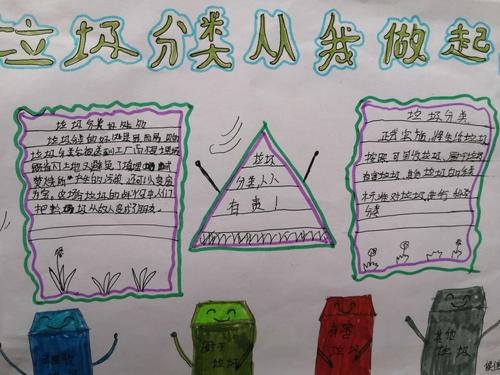 垃圾分类从我做起
垃圾分类好处多
垃圾分类的好处是显而易见的
垃圾分类后被送到工厂而不是填埋场
既省下土地又避免了填埋或
焚烧所产生的污染，还可以变废
为宝。这场
把垃圾从敌人变成了朋友。
垃圾
分类人人
有责！
垃圾分类
将生活垃圾
按照可回收垃圾、厨余垃圾
有害垃圾、其他垃圾的分类
标准对垃圾进行
分类
可回收
垃圾
厨余
垃圾
有害
垃圾
其他
垃圾